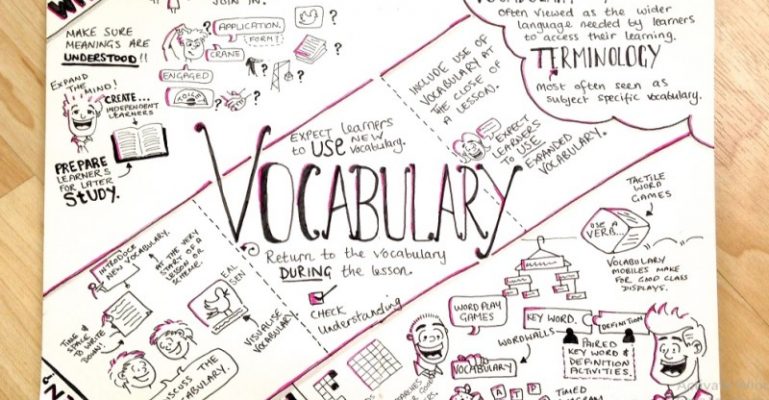 WH
JOIN IN.
MAKE SURE
MEANINGS ARE
UNDERSTOOD!!
APPLICATION.
FORM?
CRANE
ENGAGED
EXPAND
THE
MIND!
CREATE...
INDEPENDENT
LEARNERS
PREPARE
LEARNERS
FOR LATER
STUDY.
often viewed as the wider
language needed by learners
to access their learning.
TERMINOLOGY
most often seen as
subject specific vocabulary.
INCLUDE USE OF
VOCABULARY AT
THE CLOSE OF
A LESSON.
EXPECT
LEARNERS
TO USE
EXPANDED
VOCABULARY.
EXPECT learners
to USE new
vocabulary.
VOCABULARY
Return to the vocabulary
DURING the lesson.
CHECK
understanding
INTRODUCE
NEW VOCABULARY.
AT THE VERY
START OF A
LESSON OR
SCHEME.
EAL
SEN
VISUALISE
VOCABULARY.
TIME &
SPACE
TO WRITE
DOWN!
DISCUSS THE
VOCABULARY.
TACTILE
WORD
GAMES
USE A
VERB...
VOCABULARY
MOBILES MAKE
FOR GOOD CLASS
DISPLAYS.
WORD PLAY
GAMES
KEY WORD.
DEFINITION
WORDWALLS
PAIRED
KEY WORD &
DEFINITION
ACTIVITIES.
VOCABULARY
TIMED